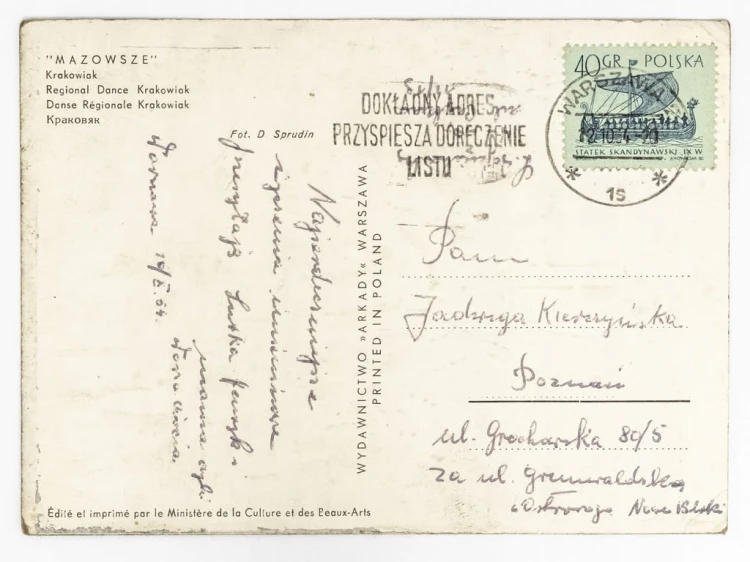 "MAZOWSZE"
Krakowiak
Regional Dance Krakowiak
Danse Régionale Krakowiak
Краковяк
Fot. D Sprudin
Najserdeczniejsze
życzenia imieninowe
przesyłają Lutka Henryk i
mama
Warszawa 10/X.64.
WYDAWNICTWO »ARKADY« WARSZAWA
PRINTED IN POLAND
Édité et imprimé par le Ministère de la Culture et des Beaux-Arts
DOKŁADNY ADRES
PRZYSPIESZA DORĘCZENIE
LISTU
WARSZAWA
12.10.64-20
1s
40 GR POLSKA
STATEK SKANDYNAWSKI, IX W
Pani
Jadwiga Kierczyńska
Poznań
ul. Grochowska 80/5
za ul. Grunwaldzką